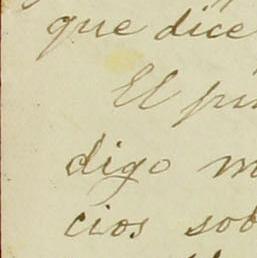 que dice
El pu
digo m
cios sob